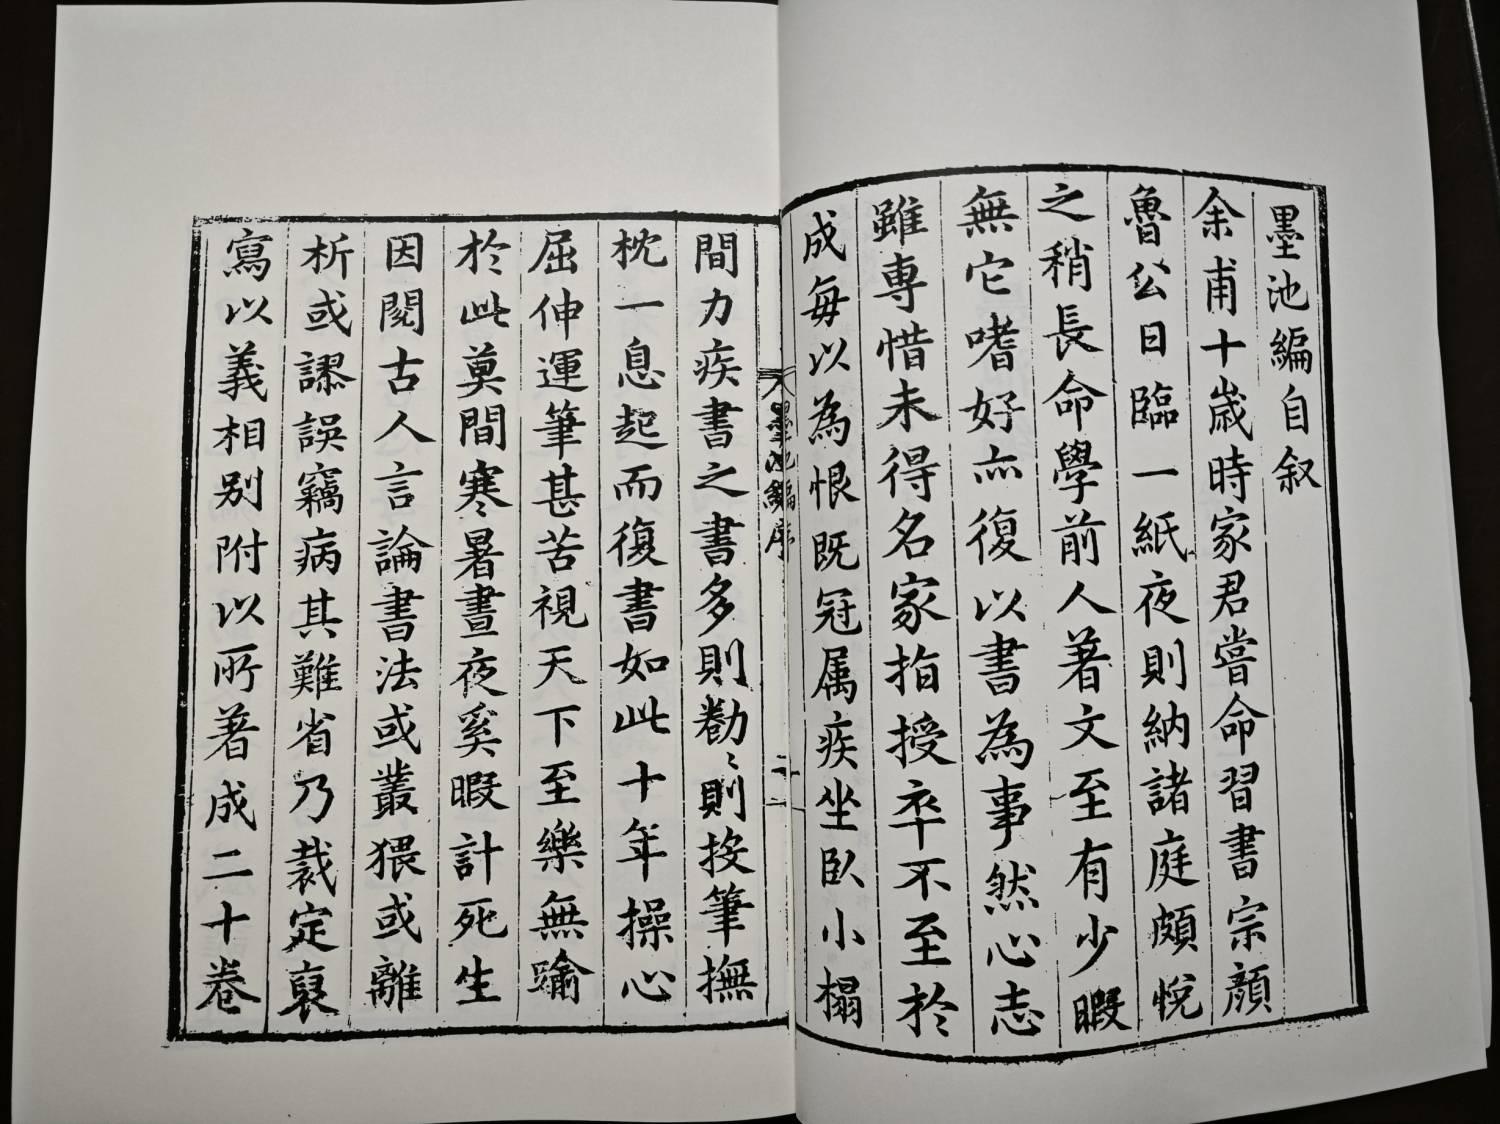 墨池編自叙
余甫十歲時家君嘗命習書宗顔
魯公日臨一紙夜則納諸庭頗悅
之稍長命學前人著文至有少暇
無它嗜好亦復以書為事然心志
雖專惜未得名家指授卒不至於
成每以為恨既冠属疾坐臥小榻
墨池編序
二
間力疾書之書多則勌〻則按筆撫
枕一息起而復書如此十年操心
屈伸運筆甚苦視天下至樂無踰
於此莫間寒暑晝夜奚暇計死生
因閱古人言論書法或叢猥或離
析或謬誤竊病其難省乃裁定裒
寫以義相別附以所著成二十卷